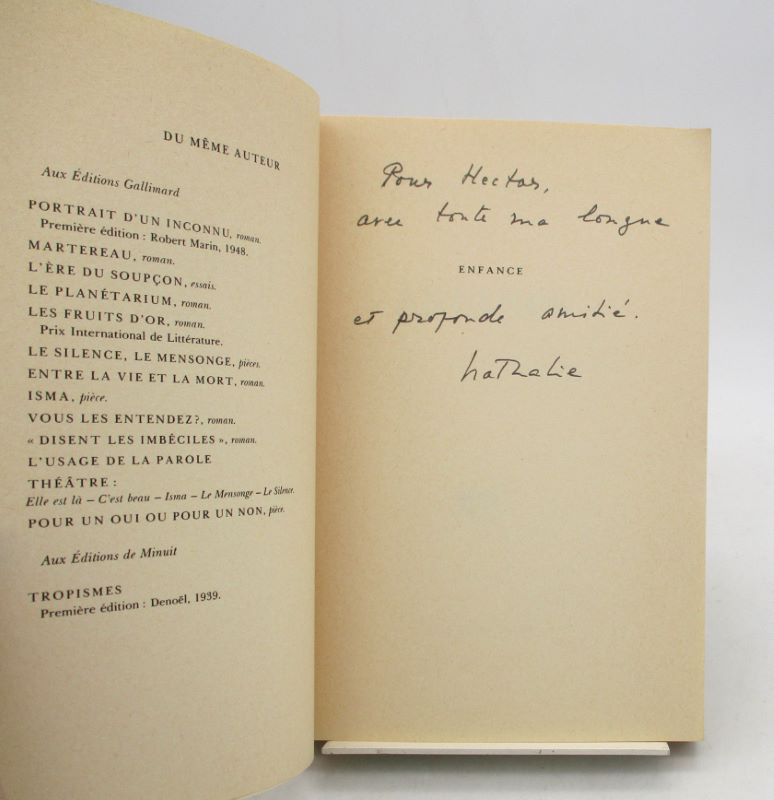 DU MÊME AUTEUR
Aux Éditions Gallimard
PORTRAIT D'UN INCONNU, roman.
Première édition : Robert Marin, 1948.
MARTEREAU, roman.
L'ÈRE DU SOUPÇON, essais.
LE PLANÉTARIUM, roman.
LES FRUITS D'OR, roman.
Prix International de Littérature.
LE SILENCE, LE MENSONGE, pièces.
ENTRE LA VIE ET LA MORT, roman.
ISMA, pièce.
VOUS LES ENTENDEZ?, roman.
« DISENT LES IMBÉCILES », roman.
L'USAGE DE LA PAROLE
THÉÂTRE :
Elle est là – C'est beau – Isma – Le Mensonge – Le Silence.
POUR UN OUI OU POUR UN NON, pièce.
Aux Éditions de Minuit
TROPISMES
Première édition : Denoël, 1939.
Pour Hector,
avec toute ma longue
ENFANCE
et profonde amitié.
Nathalie